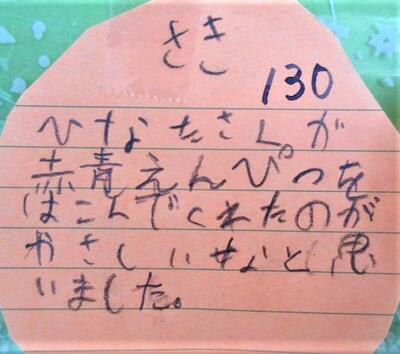 さき
130
ひなたさん。が
赤青えんぴつを
はこんでくれたのが
やさしいなと思
いました。